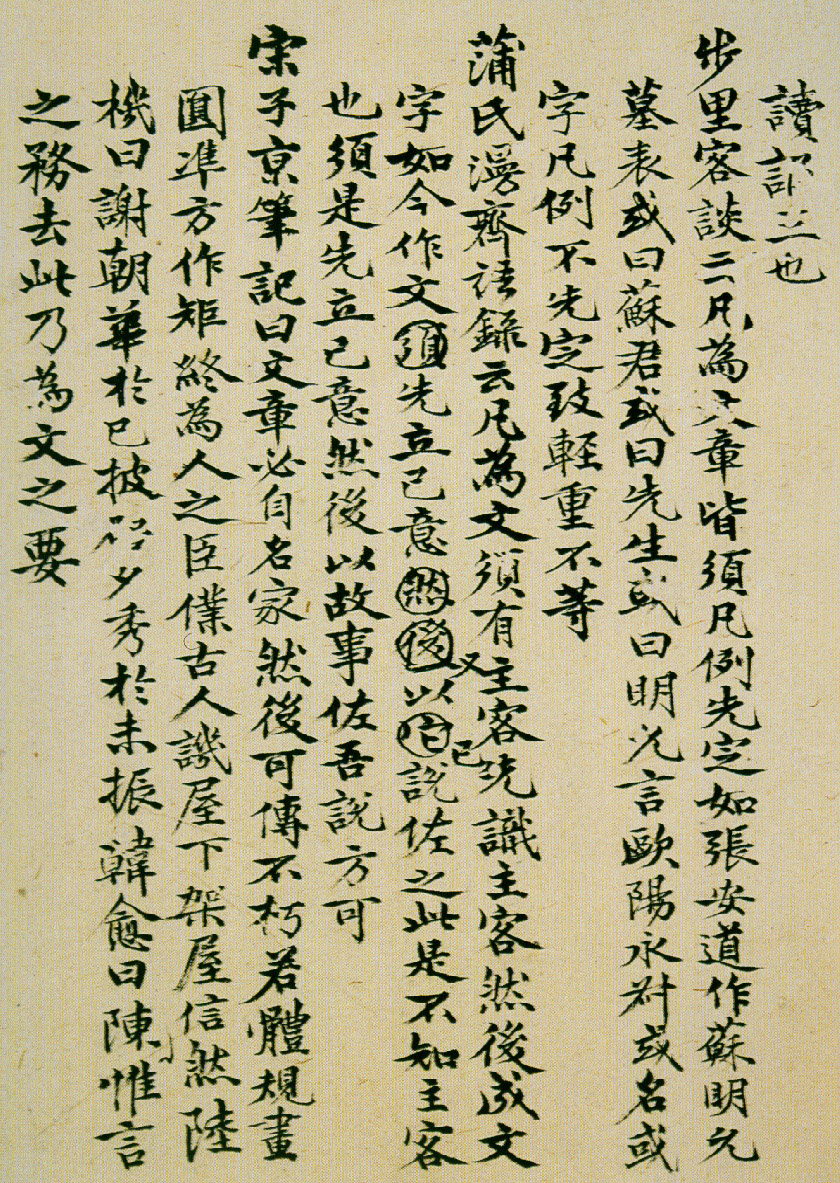 讀記之也
步里客談云凡為文章皆須凡例先定如張安道作蘇明允
墓表或曰蘇君或曰先生或曰明允言歐陽永叔或名或
字凡例不先定致輕重不等
蒲氏漫齋語録云凡為文須有主客先識主客然後成文
字如今作文須先立己意然後以故事說佐之此是不知主客
又已
也須是先立己意然後以故事佐吾說方可
宋子京筆記曰文章必自名家然後可傳不朽若體規畫
圓準方作矩終為人之臣僕古人譏屋下架屋信然陸
機曰謝朝華於已披啓夕秀於未振韓愈曰陳惟言
之務去此乃為文之要